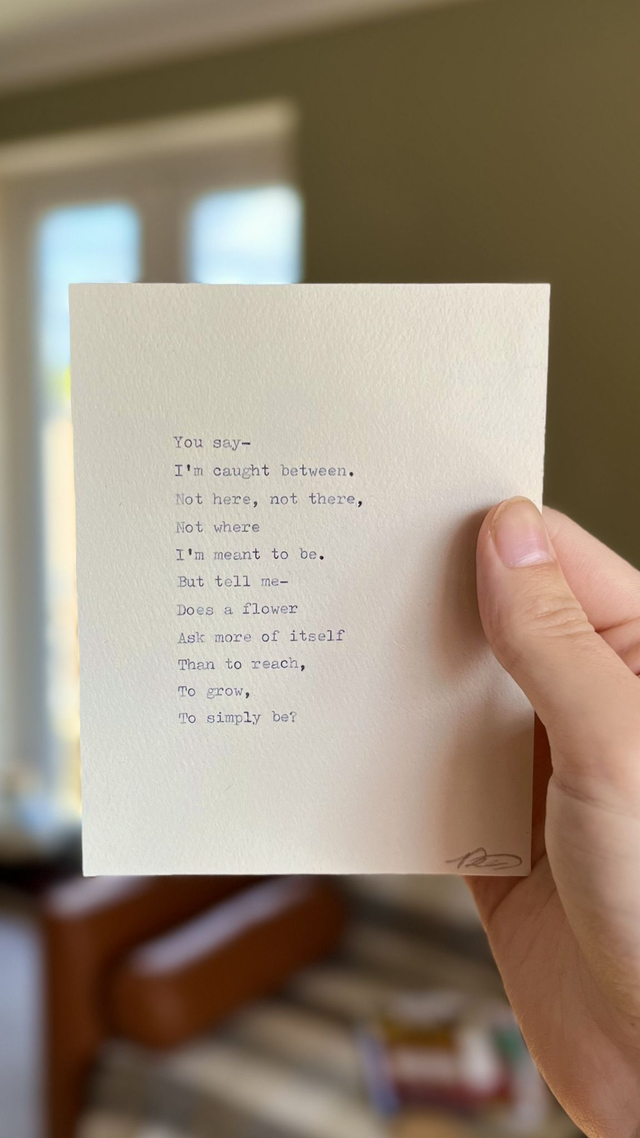 You say-
I'm caught between.
Not here, not there,
Not where
I'm meant to be.
But tell me-
Does a flower
Ask more of itself
Than to reach,
To grow,
To simply be?